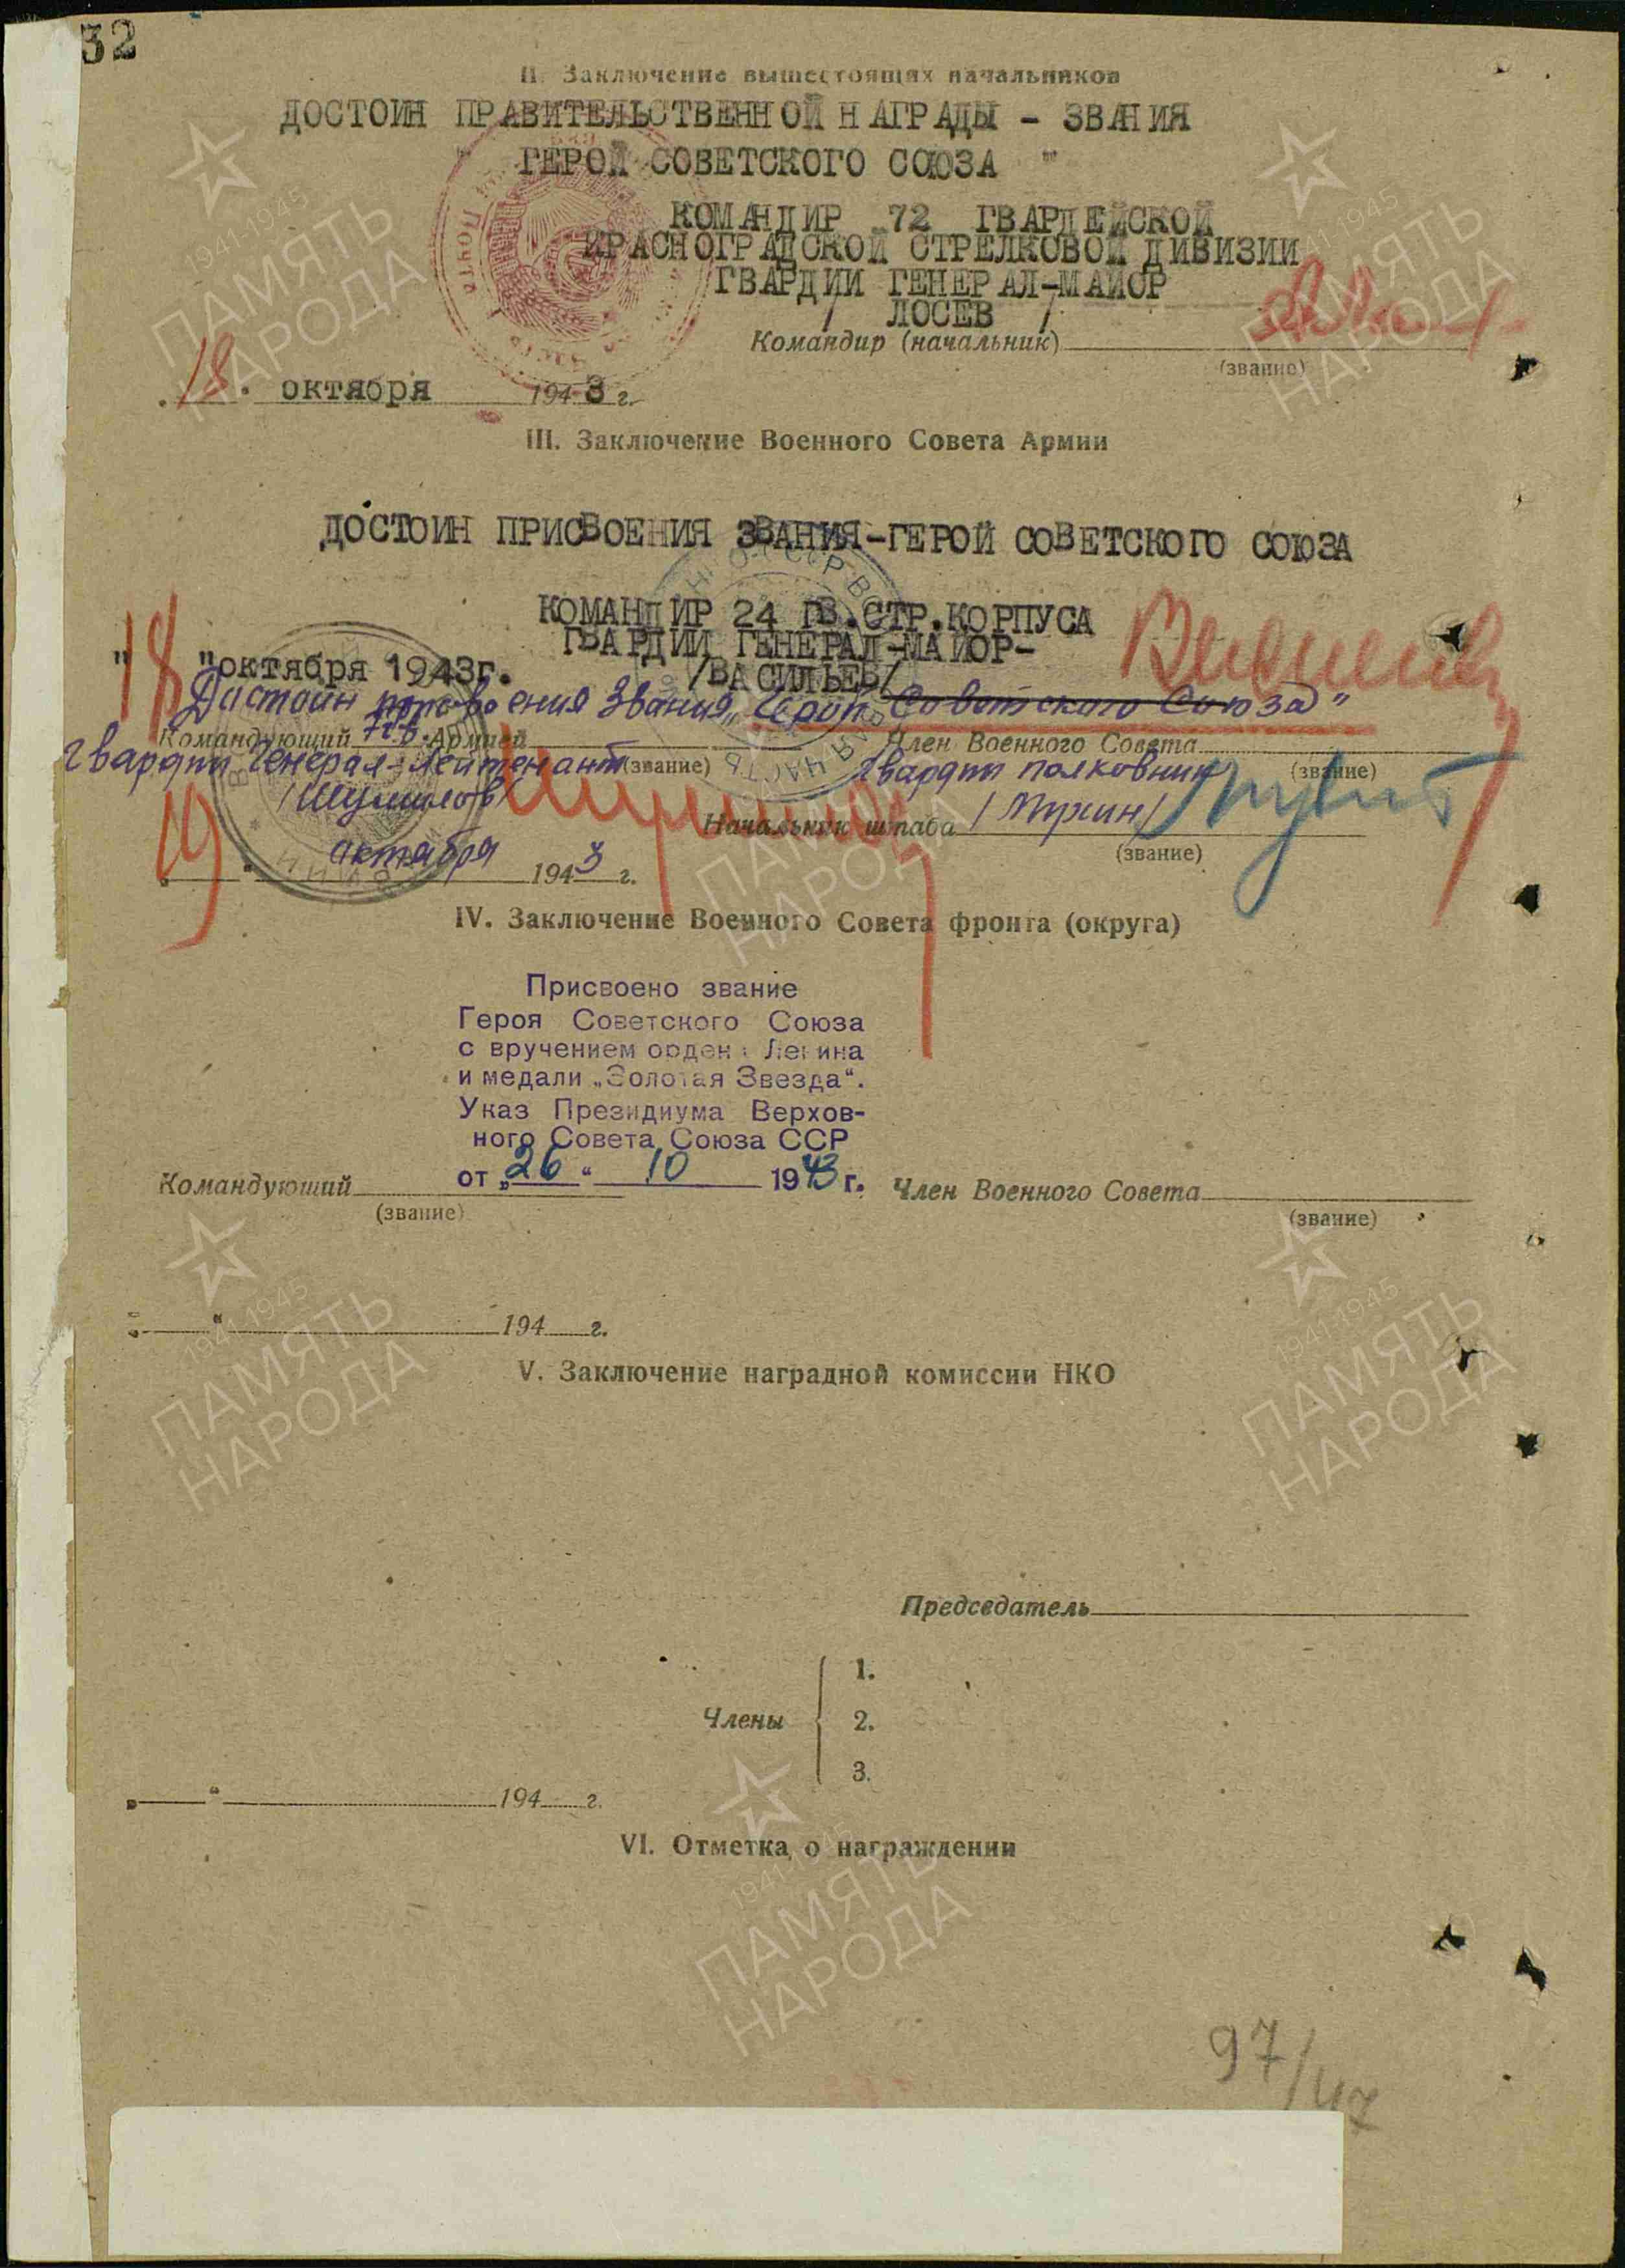 32
II. Заключение вышестоящих начальников
ДОСТОИН ПРАВИТЕЛЬСТВЕННОЙ НАГРАДЫ - ЗВАНИЯ
" ГЕРОЙ СОВЕТСКОГО СОЮЗА "
КОМАНДИР 72 ГВАРДЕЙСКОЙ
КРАСНОГРАДСКОЙ СТРЕЛКОВОЙ ДИВИЗИИ
ГВАРДИИ ГЕНЕРАЛ-МАЙОР
/ ЛОСЕВ /
Командир (начальник)
(звание)
18 октября 1943 г.
III. Заключение Военного Совета Армии
ДОСТОИН ПРИСВОЕНИЯ ЗВАНИЯ-ГЕРОЙ СОВЕТСКОГО СОЮЗА
КОМАНДИР 24 ГВ.СТР.КОРПУСА
ГВАРДИИ ГЕНЕРАЛ-МАЙОР-
/ВАСИЛЬЕВ/
"18 "октября 1943г.
Достоин присвоения звания „Герой Советского Союза"
Командующий 7 гв. Армией Член Военного Совета
гвардии генерал-лейтенант (звание) гвардии полковник (звание)
/Шумилов/
Начальник штаба /Мухин/
(звание)
19 октября 1943 г.
IV. Заключение Военного Совета фронта (округа)
Присвоено звание
Героя Советского Союза
с вручением ордена Ленина
и медали „Золотая Звезда“.
Указ Президиума Верхов-
ного Совета Союза ССР
от „26“ 10 1943 г.
Командующий Член Военного Совета
(звание) (звание)
„ “ 194 г.
V. Заключение наградной комиссии НКО
Председатель
Члены
1.
2.
3.
„ “ 194 г.
VI. Отметка о награждении
97/47
1941-1945
ПАМЯТЬ
НАРОДА